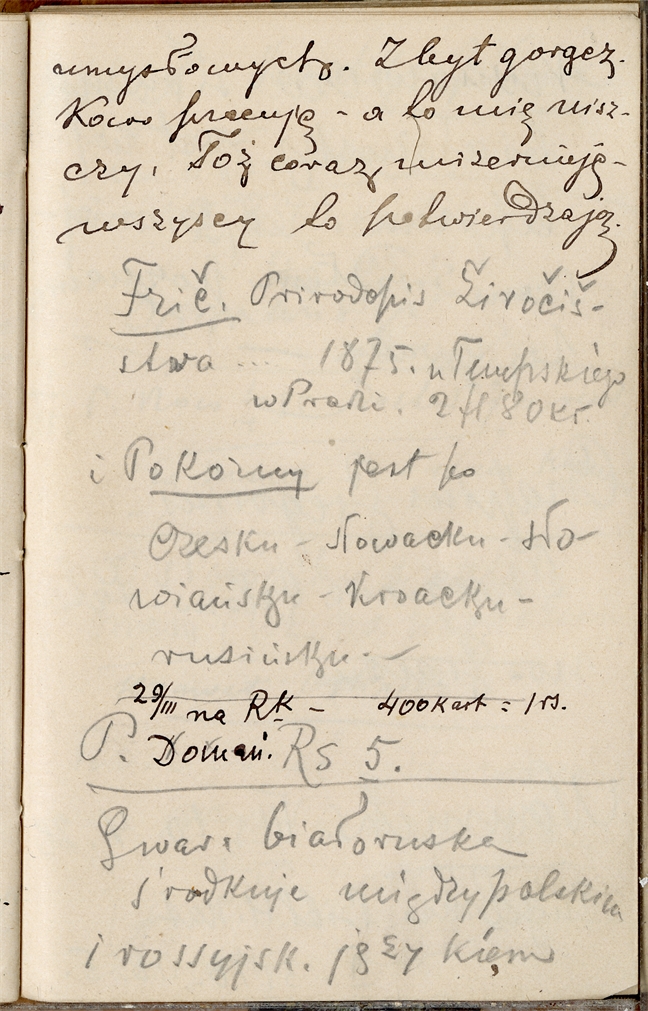 umysłowych. Zbyt gorącz-
kowo pracuję - a to mię nisz-
czy. Toż coraz mizernieję -
wszyscy to potwierdzają.
Frič. Prirodopis Živočiš-
stwa ... 1875. u Tempskiego
w Pradze. 2 fl 80 kr.
i Pokorny jest po
Czesku - słowacku - sło-
wiańsku - kroacku -
rusińsku. -
29/III na Rk - 400 kart = 1 rs.
P. Domań. Rs 5.
Gwara białoruska
środkuje między polskim
i rossyjsk. językiem